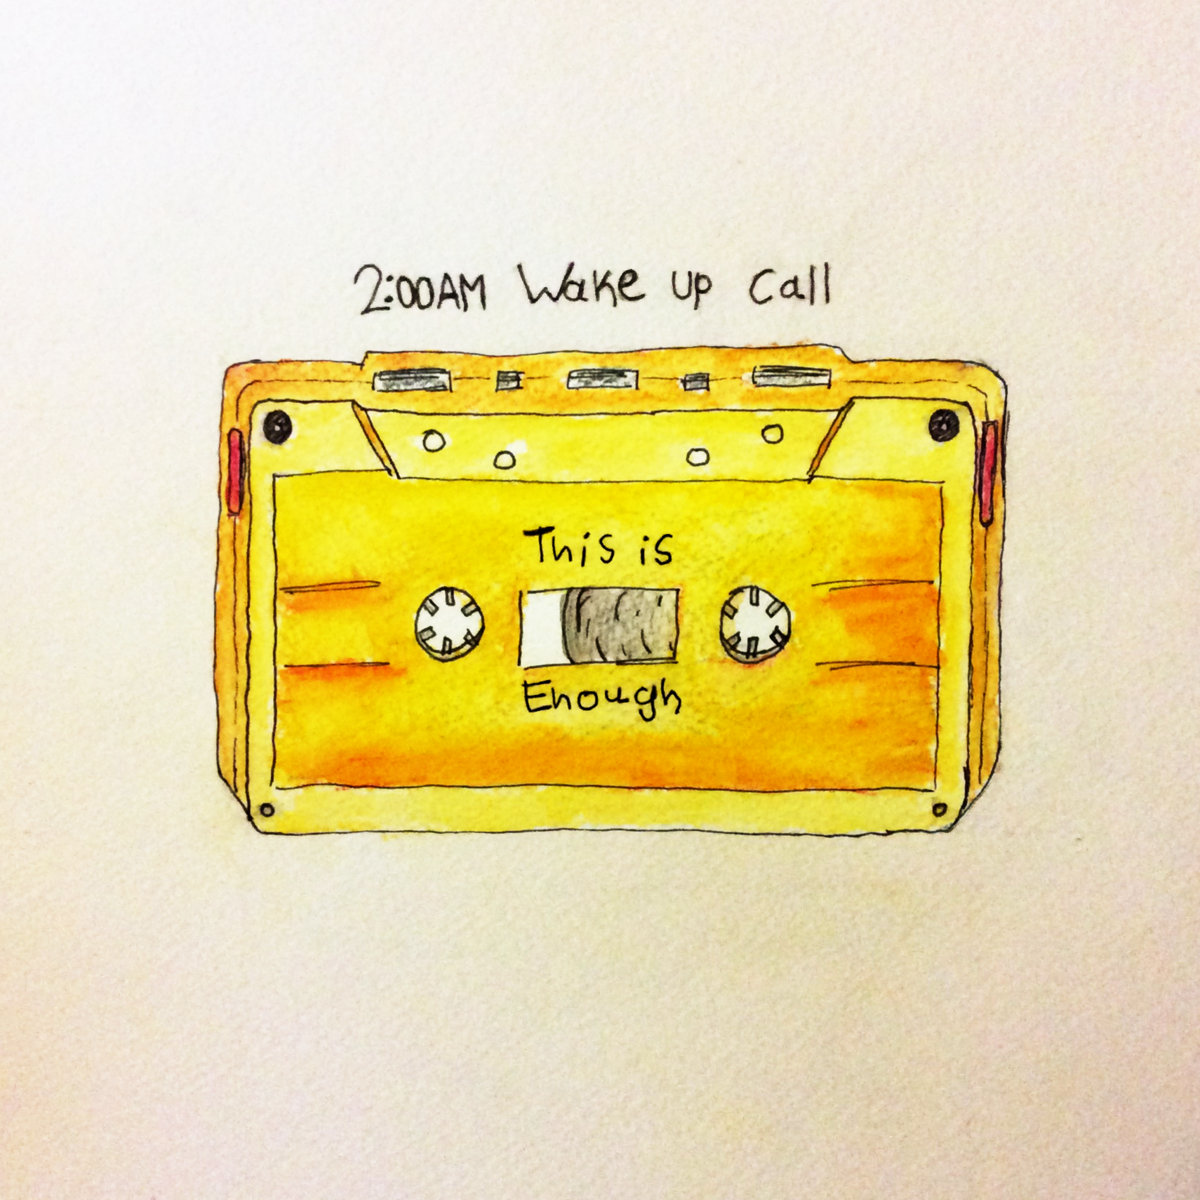 2:00AM Wake up Call
This is
Enough